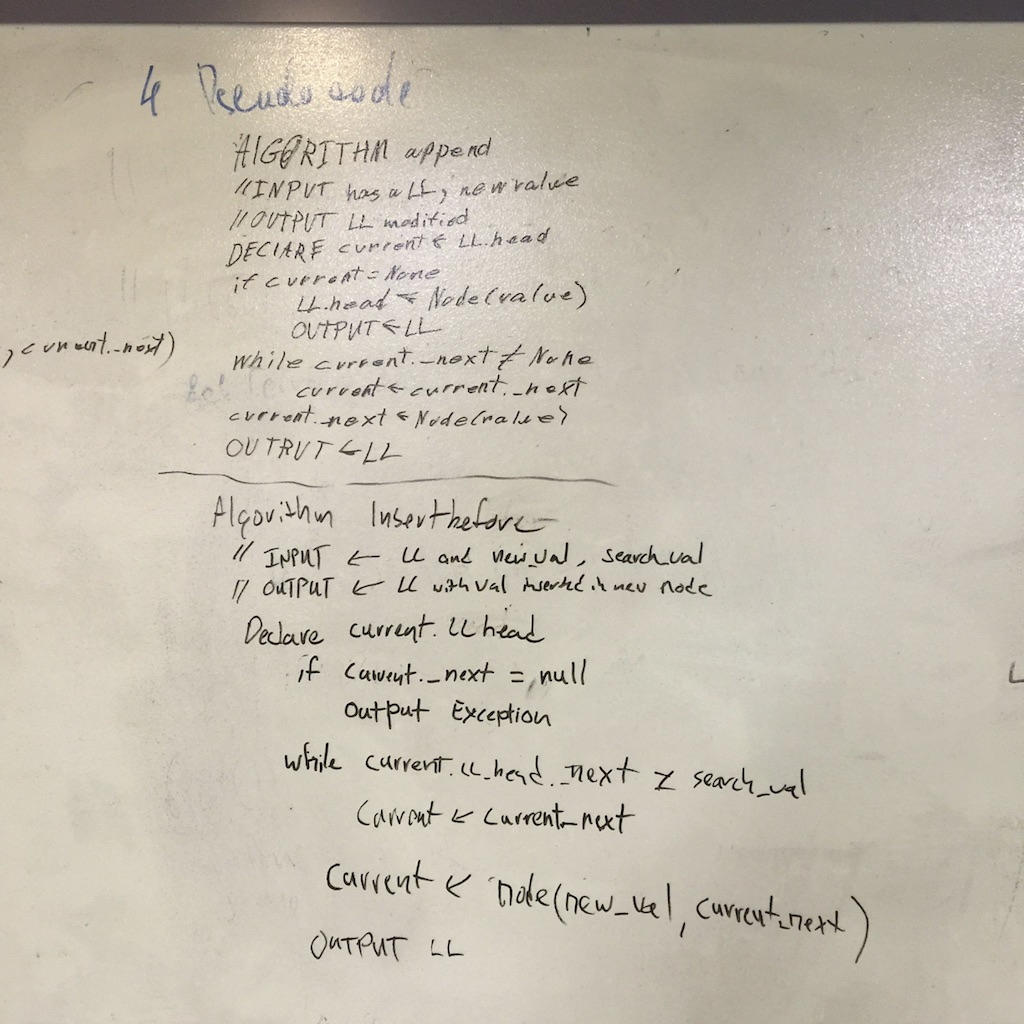 4 Pseudo code
AlGORITHM append
// INPUT has a LL, new value
// OUTPUT LL modified
DECLARE current ← LL.head
if current = None
LL.head ← Node(value)
OUTPUT ← LL
, current._next)
while current._next ≠ None
current ← current._next
current._next ← Node(value)
OUTPUT ← LL
Algorithm Insertbefore
// INPUT ← LL and new_val, search_val
// OUTPUT ← LL with val inserted in new node
Declare current. LL head
if current._next = null
Output Exception
while current.LL_head._next ≠ search_val
Current ← current_next
Current ← node(new_val, current_next)
OUTPUT LL